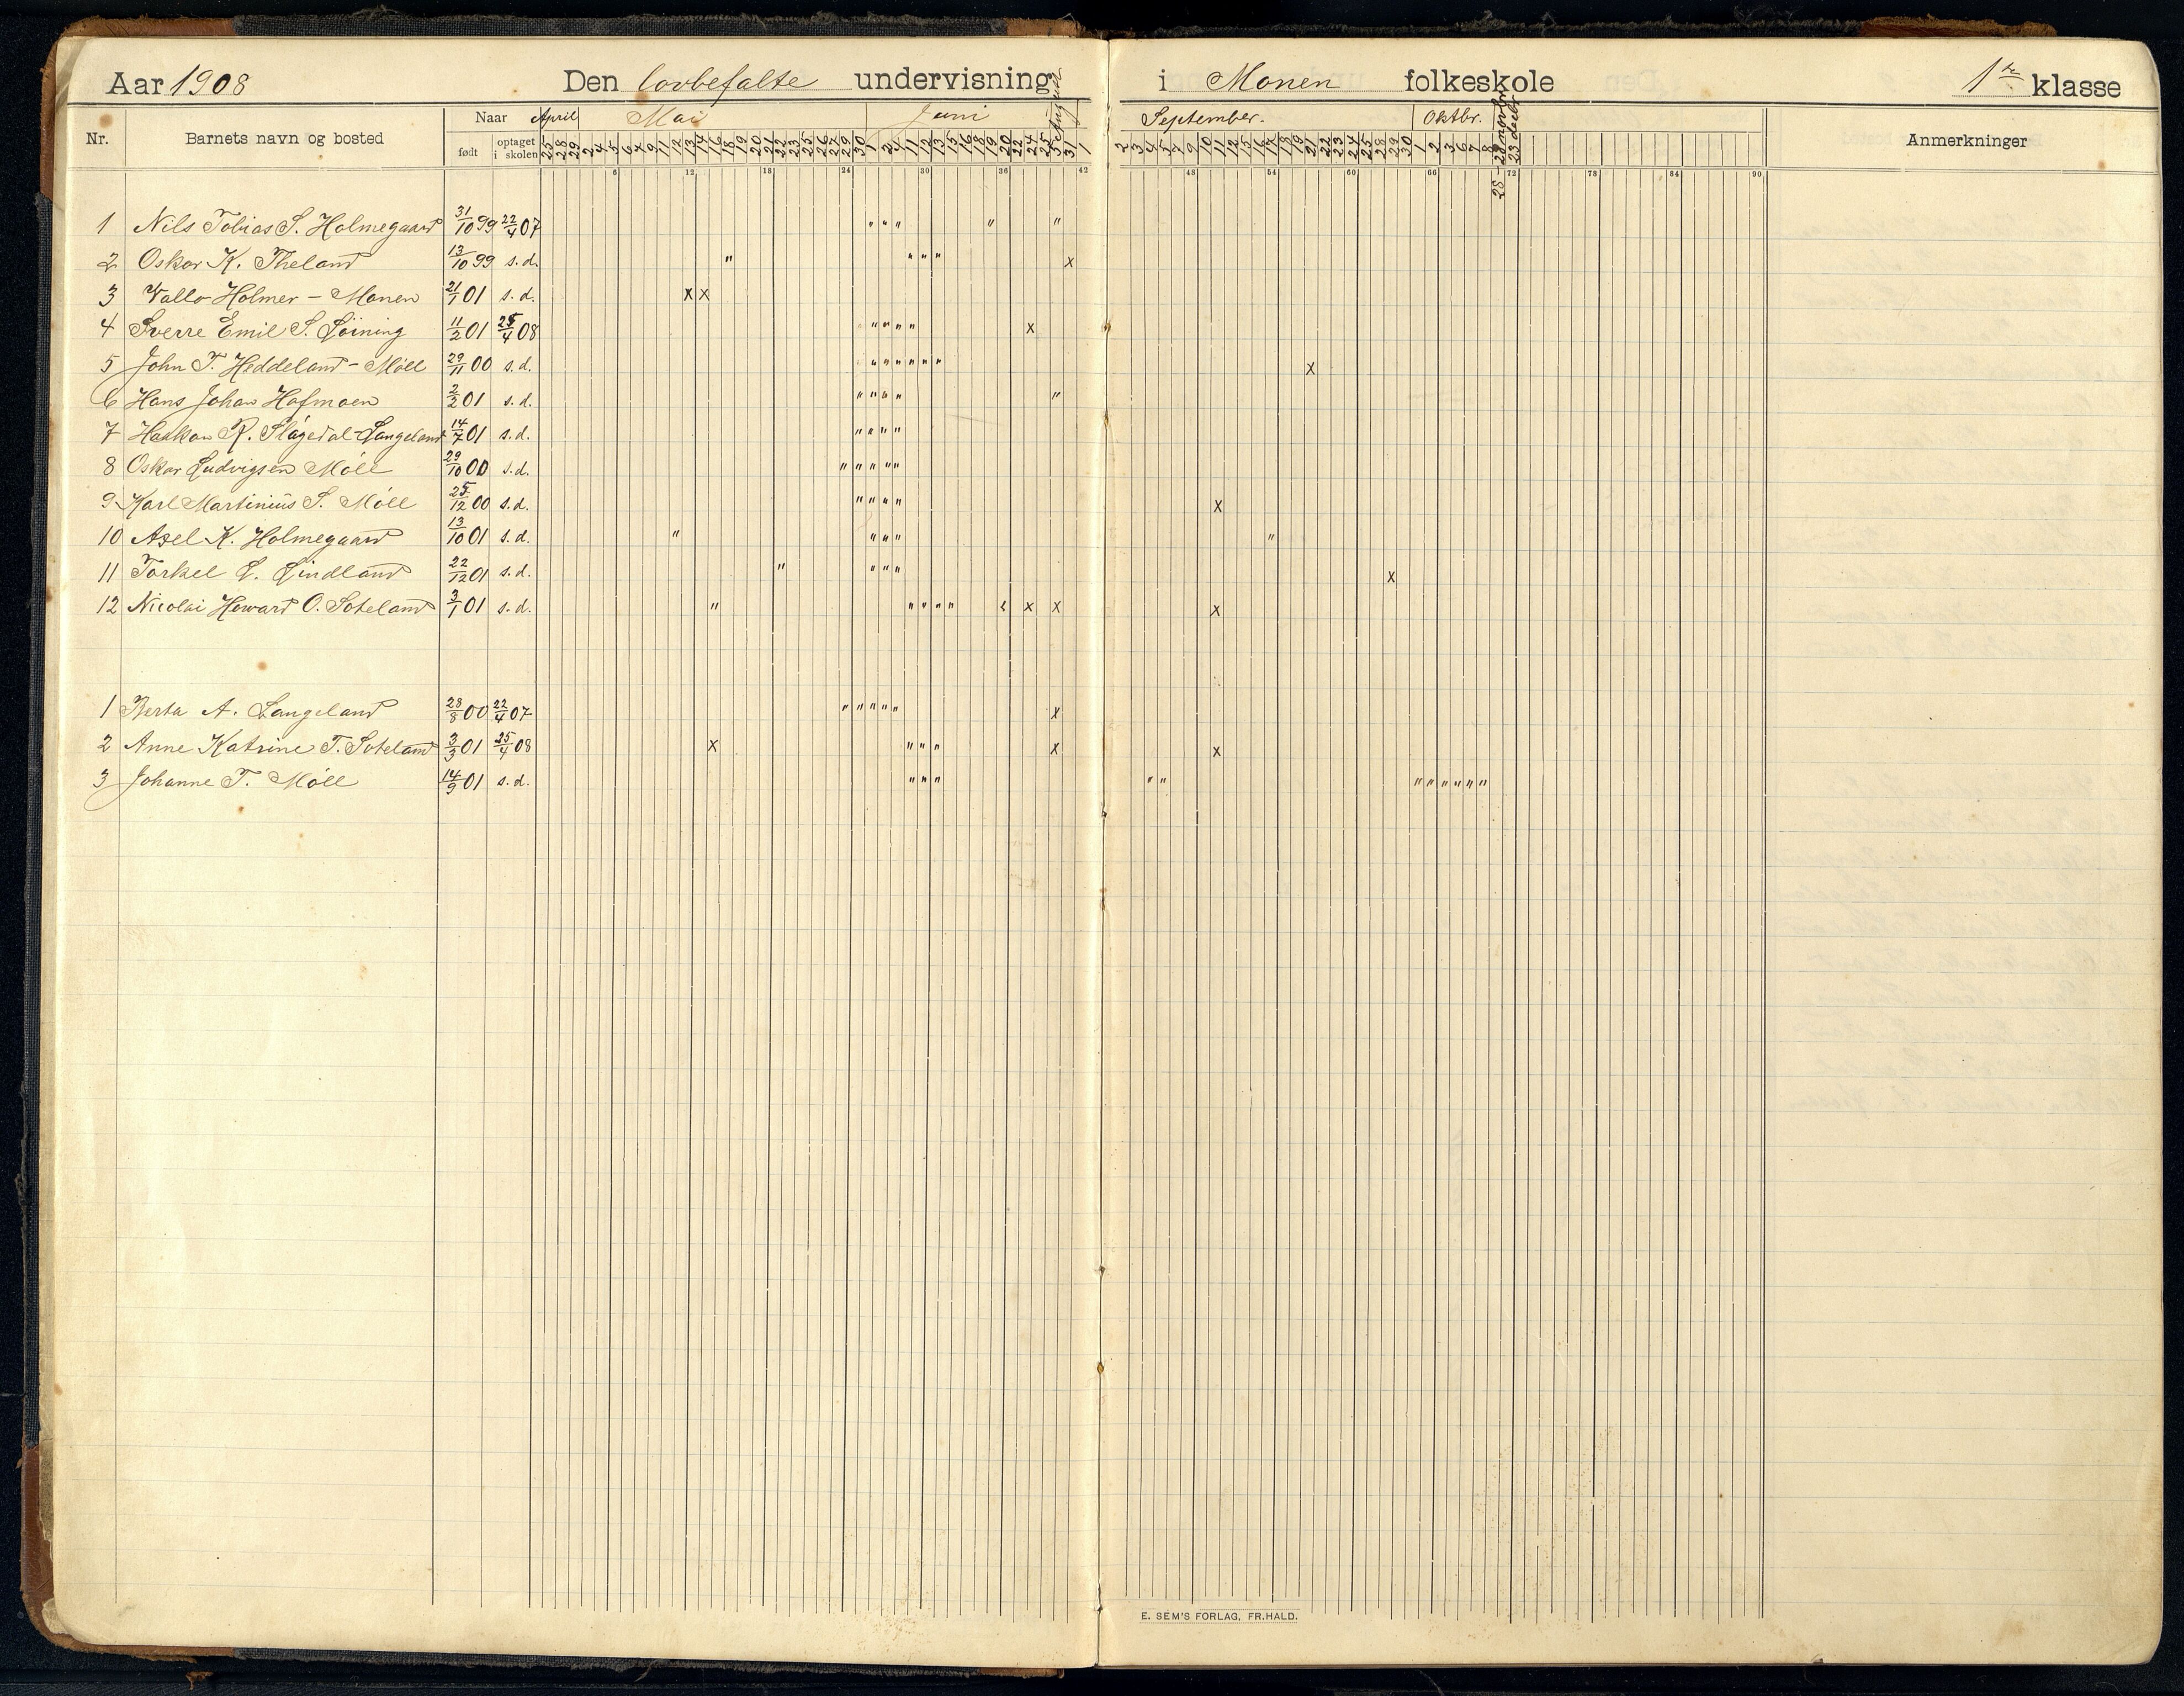 Aar 1908 Den lovbefalte undervisning i Monen folkeskole 1ste klasse
Nr. Barnets navn og bosted Naar født optaget i skolen April Mai Juni August September. Oktbr. novbr decbr Anmerkninger
25 28 29 2 4 5 6 7 9 11 12 13 14 16 18 19 20 21 22 23 25 26 27 29 30 1 2 4 11 12 13 15 16 18 19 20 22 24 25 31 1 2 3 4 5 7 9 10 11 12 15 16 17 18 19 21 22 23 24 25 28 29 30 1 2 3 6 7 8 28 23
6 12 18 24 30 36 42 48 54 60 66 72 78 84 90
1 Nils Tobias S. Holmegaard 31/10 99 22/4 07 " " " " "
2 Oskar K. Theland 13/10 99 s.d. " " " " x
3 Vallo Holmer - Monen 21/1 01 s.d. x x
4 Sverre Emil S. Löining 11/2 01 25/4 08 " " " " x
5 John T. Heddeland - Möll 29/11 00 s.d. " " " " " " x
6 Hans Johan Hafmoen 2/2 01 s.d. " " " " "
7 Haakon R. Slågedal-Langeland 14/7 01 s.d. " " " "
8 Oskar Ludvigsen Möll 29/10 00 s.d. " " " " "
9 Karl Martinius S. Möll 25/12 00 s.d. " " " " x
10 Axel K. Holmegaard 13/10 01 s.d. " " " " "
11 Torkel L. Lindland 22/12 01 s.d. " " " " x
12 Nicolai Howard O. Soteland 3/1 01 s.d. " " " " " x x x
1 Berta A. Langeland 28/8 00 22/4 07 " " " " " x
2 Anne Katrine T. Soteland 3/3 01 25/4 08 x " " " x x
3 Johanne T. Möll 14/9 01 s.d. " " " " " " " " " " "
E. SEM'S FORLAG, FR.HALD.